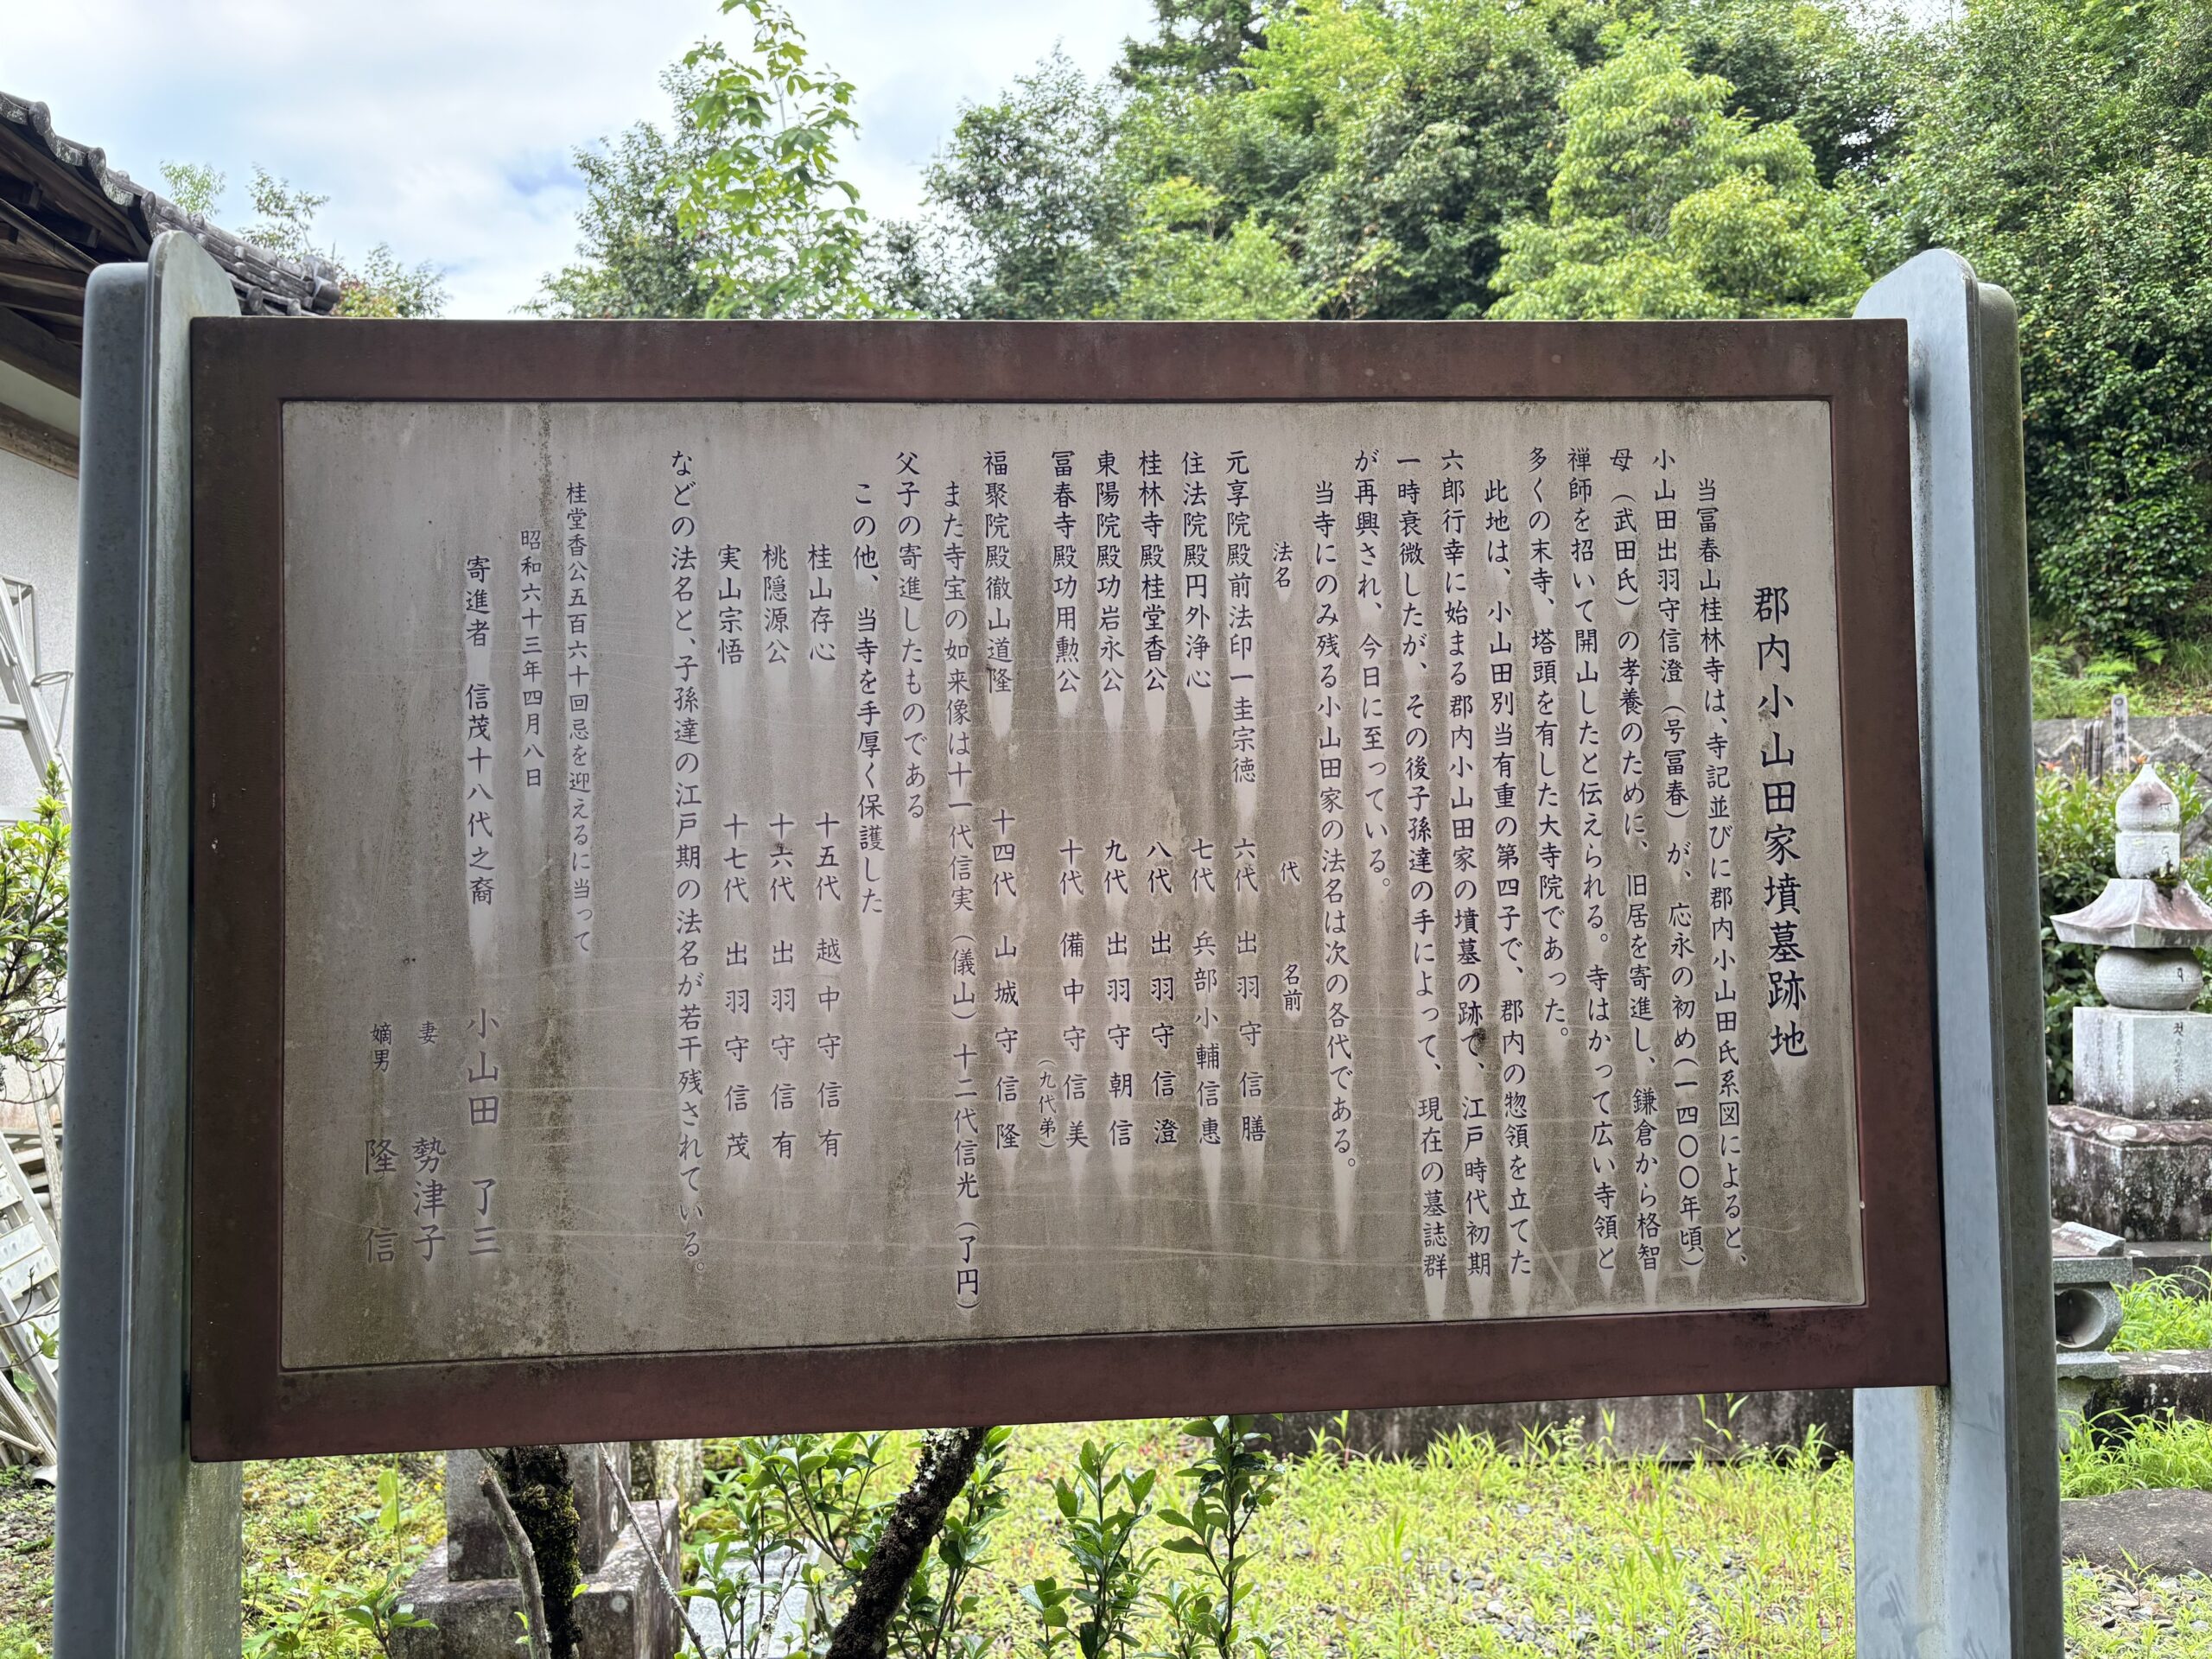 郡内小山田家墳墓跡地
当冨春山桂林寺は、寺記並びに郡内小山田氏系図によると、
小山田出羽守信澄（号冨春）が、応永の初め（一四〇〇年頃）
母（武田氏）の孝養のために、旧居を寄進し、鎌倉から格智
禅師を招いて開山したと伝えられる。寺はかって広い寺領と
多くの末寺、塔頭を有した大寺院であった。
此地は、小山田別当有重の第四子で、郡内の惣領を立てた
六郎行幸に始まる郡内小山田家の墳墓の跡で、江戸時代初期
一時衰微したが、その後子孫達の手によって、現在の墓誌群
が再興され、今日に至っている。
当寺にのみ残る小山田家の法名は次の各代である。
法名 代 名前
元享院殿前法印一圭宗徳 六代 出羽守信膳
住法院殿円外浄心 七代 兵部小輔信惠
桂林寺殿桂堂香公 八代 出羽守信澄
東陽院殿功岩永公 九代 出羽守朝信
冨春寺殿功用勲公 十代 備中守信美
（九代弟）
福聚院殿徹山道隆 十四代 山城守信隆
また寺宝の如来像は十一代信実（儀山）十二代信光（了円）
父子の寄進したものである
この他、当寺を手厚く保護した
桂山存心 十五代 越中守信有
桃隠源公 十六代 出羽守信有
実山宗悟 十七代 出羽守信茂
などの法名と、子孫達の江戸期の法名が若干残されている。
桂堂香公五百六十回忌を迎えるに当って
昭和六十三年四月八日
寄進者 信茂十八代之裔 小山田 了三
妻 勢津子
嫡男 隆信